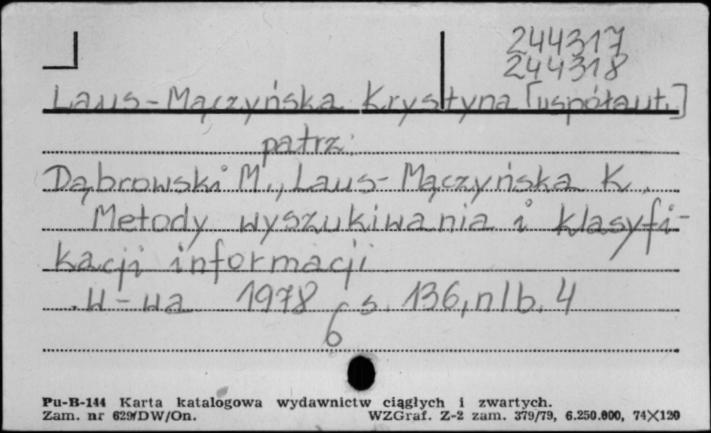 244317
244318
Laus-Mączyńska Krystyna [współaut.]
patrz:
Dąbrowski M., Laus-Mączyńska K.
Metody wyszukiwania i klasyfi-
kacji informacji
W-wa 1978 s. 136, nlb. 4
6
Pu-B-144 Karta katalogowa wydawnictw ciągłych i zwartych.
Zam. nr 629/DW/On. WZGraf. Z-2 zam. 379/79, 6.250.000, 74×120